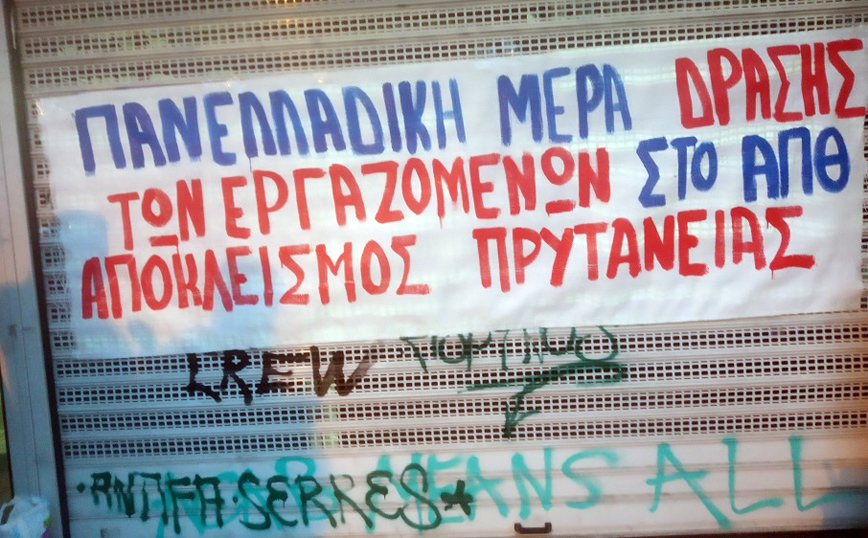 ΠΑΝΕΛΛΑΔΙΚΗ ΜΕΡΑ ΔΡΑΣΗΣ
ΤΩΝ ΕΡΓΑΖΟΜΕΝΩΝ ΣΤΟ ΑΠΘ
ΑΠΟΚΛΕΙΣΜΟΣ ΠΡΥΤΑΝΕΙΑΣ
CREW
ANTIFA SERRES
MEANS ALL